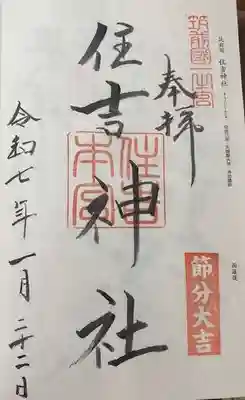 筑前國一之宮
筑前國 住吉神社
奉拝
住吉神社
住吉本宮
令和七年一月二十二日
節分大吉